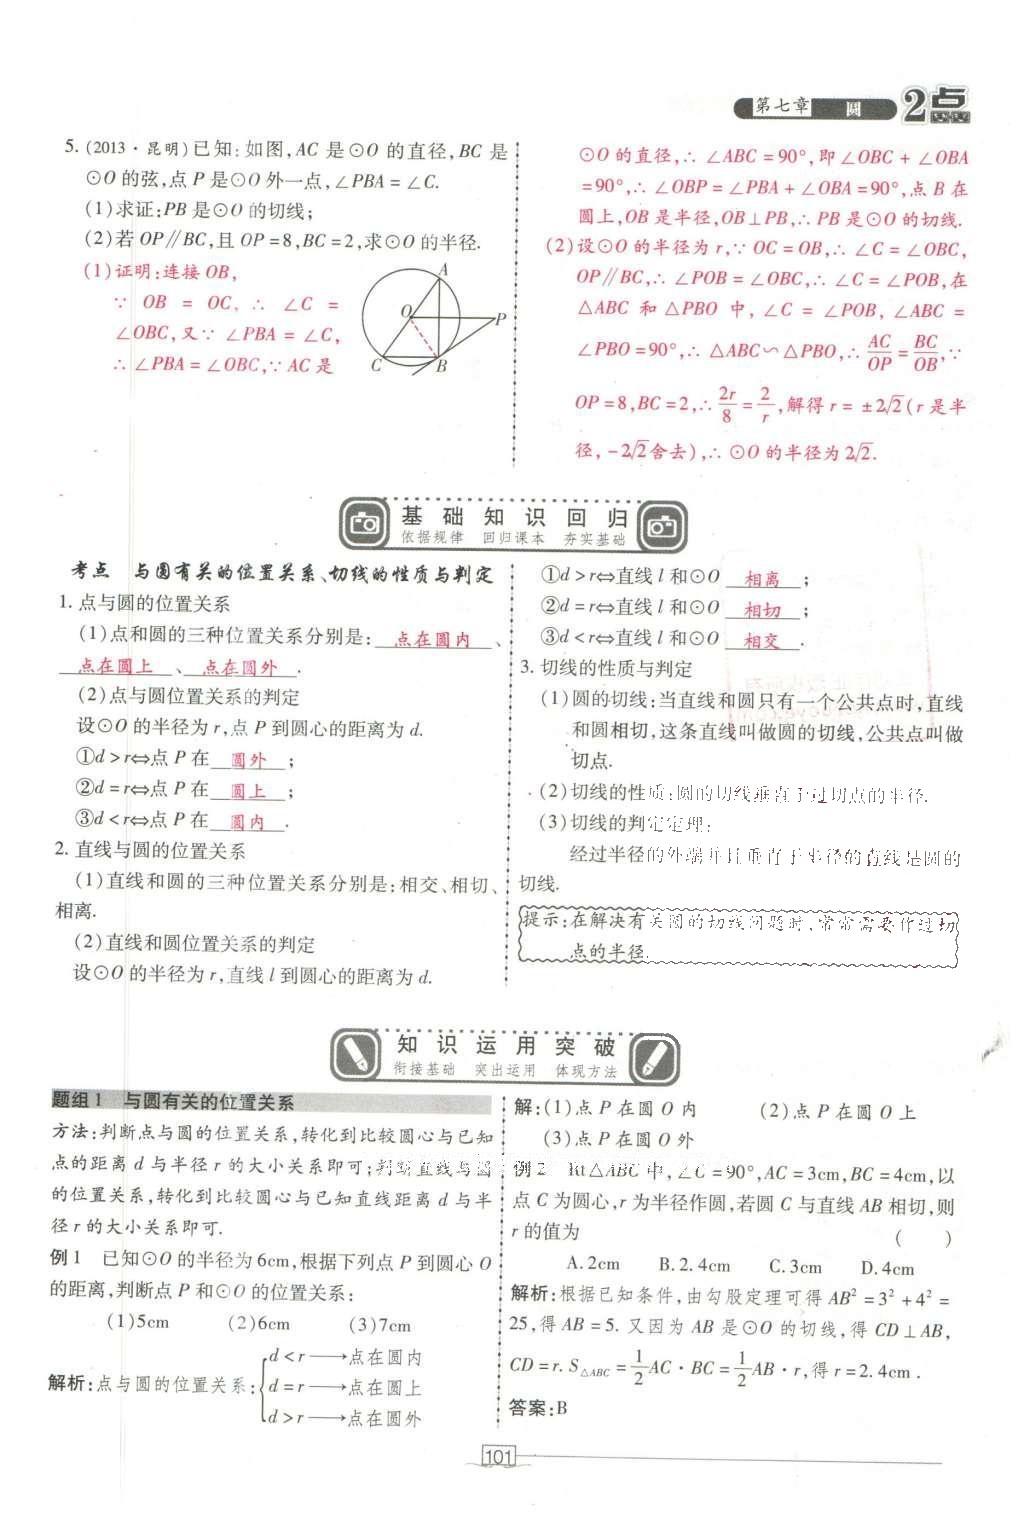 第七章 圆 2点
5. (2013·昆明)已知:如图,AC 是⊙O 的直径,BC 是
⊙O 的弦,点 P 是⊙O 外一点,∠PBA=∠C.
(1)求证:PB 是⊙O 的切线;
(2)若 OP∥BC,且 OP=8,BC=2,求⊙O 的半径.
(1)证明:连接 OB,
∵ OB = OC, ∴ ∠C =
∠OBC,又∵ ∠PBA=∠C,
∴∠PBA=∠OBC,∵AC 是
A
O
P
C
B
⊙O 的直径,∴ ∠ABC=90°,即∠OBC+∠OBA
=90°,∴ ∠OBP=∠PBA+∠OBA=90°,点 B 在
圆上,OB 是半径,OB⊥PB,∴ PB 是⊙O 的切线.
(2)设⊙O 的半径为 r,∵ OC=OB,∴ ∠C=∠OBC,
OP∥BC,∴ ∠POB=∠OBC,∴ ∠C=∠POB,在
△ABC 和 △PBO 中,∠C=∠POB,∠ABC=
∠PBO=90°,∴ △ABC∽△PBO,∴ AC/OP=BC/OB,∵
OP=8,BC=2,∴ 2r/8=2/r,解得 r=±2√2(r 是半
径,-2√2舍去),∴ ⊙O 的半径为 2√2.
基础知识回归
依据规律 回归课本 夯实基础
考点 与圆有关的位置关系、切线的性质与判定
1. 点与圆的位置关系
(1)点和圆的三种位置关系分别是: 点在圆内 、
点在圆上 、 点在圆外 .
(2)点与圆位置关系的判定
设⊙O 的半径为 r,点 P 到圆心的距离为 d.
①d>r⇔点 P 在 圆外 ;
②d=r⇔点 P 在 圆上 ;
③d<r⇔点 P 在 圆内 .
2. 直线与圆的位置关系
(1)直线和圆的三种位置关系分别是:相交、相切、
相离.
(2)直线和圆位置关系的判定
设⊙O 的半径为 r,直线 l 到圆心的距离为 d.
①d>r⇔直线 l 和⊙O 相离 ;
②d=r⇔直线 l 和⊙O 相切 ;
③d<r⇔直线 l 和⊙O 相交 .
3. 切线的性质与判定
(1)圆的切线:当直线和圆只有一个公共点时,直线
和圆相切,这条直线叫做圆的切线,公共点叫做
切点.
(2)切线的性质:圆的切线垂直于过切点的半径.
(3)切线的判定定理:
经过半径的外端并且垂直于半径的直线是圆的
切线.
提示:在解决有关圆的切线问题时,常常需要作过切
点的半径.
知识运用突破
衔接基础 突出运用 体现方法
题组1 与圆有关的位置关系
方法:判断点与圆的位置关系,转化到比较圆心与已知
点的距离 d 与半径 r 的大小关系即可;判断直线与圆
的位置关系,转化到比较圆心与已知直线距离 d 与半
径 r 的大小关系即可.
例1 已知⊙O 的半径为 6cm,根据下列点 P 到圆心 O
的距离,判断点 P 和⊙O 的位置关系:
(1)5cm (2)6cm (3)7cm
解析:点与圆的位置关系:
d<r⟶点在圆内
d=r⟶点在圆上
d>r⟶点在圆外
解:(1)点 P 在圆 O 内 (2)点 P 在圆 O 上
(3)点 P 在圆 O 外
例2 Rt△ABC 中,∠C=90°,AC=3cm,BC=4cm,以
点 C 为圆心,r 为半径作圆,若圆 C 与直线 AB 相切,则
r 的值为 ( )
A.2cm B.2.4cm C.3cm D.4cm
解析:根据已知条件,由勾股定理可得 AB²=3²+4²=
25,得 AB=5. 又因为 AB 是⊙O 的切线,得 CD⊥AB,
CD=r. S△ABC=1/2AC·BC=1/2AB·r,得 r=2.4cm.
答案:B
101